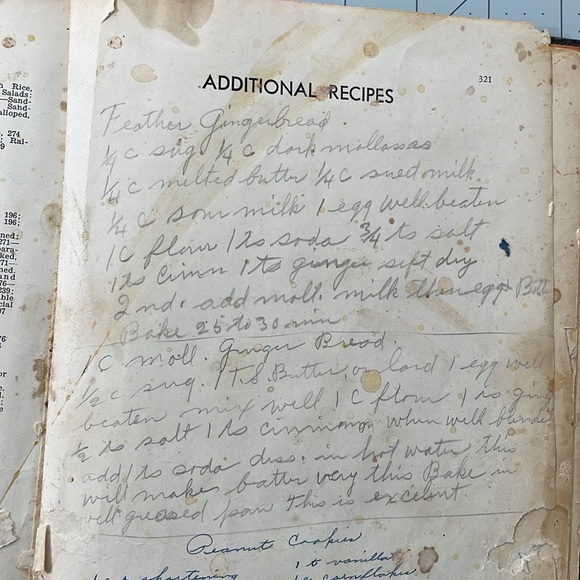 h Rice,
Salads:
—Sand-
Sand-
alloped,
274
Rai-
9
196;
196;
ned:
271—
para-
ked,
271—
ned,
and
76—
239;
ble
cial
07
76
8
ADDITIONAL RECIPES
321
Feather Gingerbread.
1/4 c sug 1/4 c dark mollasses
1/4 c melted butter 1/4 c sued milk
1/4 c sour milk 1 egg well beaten
1 c flour 1 ts soda 3/4 ts salt
1 ts Cinn 1 ts ginger sift dry
2nd. add molt. milk then egg + Butt
Bake 25 to 30 min
1 c moll. Ginger Bread.
1/2 c sug. 1 T.S. Butter or lard 1 egg well
beaten mix well 1 c flour 1 ts ging
1/2 ts salt 1 ts cinnamon when well blende
add 1 ts soda diss. in hot water this
will makes batter very this Bake in
well greased pan this is excelent.
Peanut Cookies
shortening 1 t vanilla
cornflakes